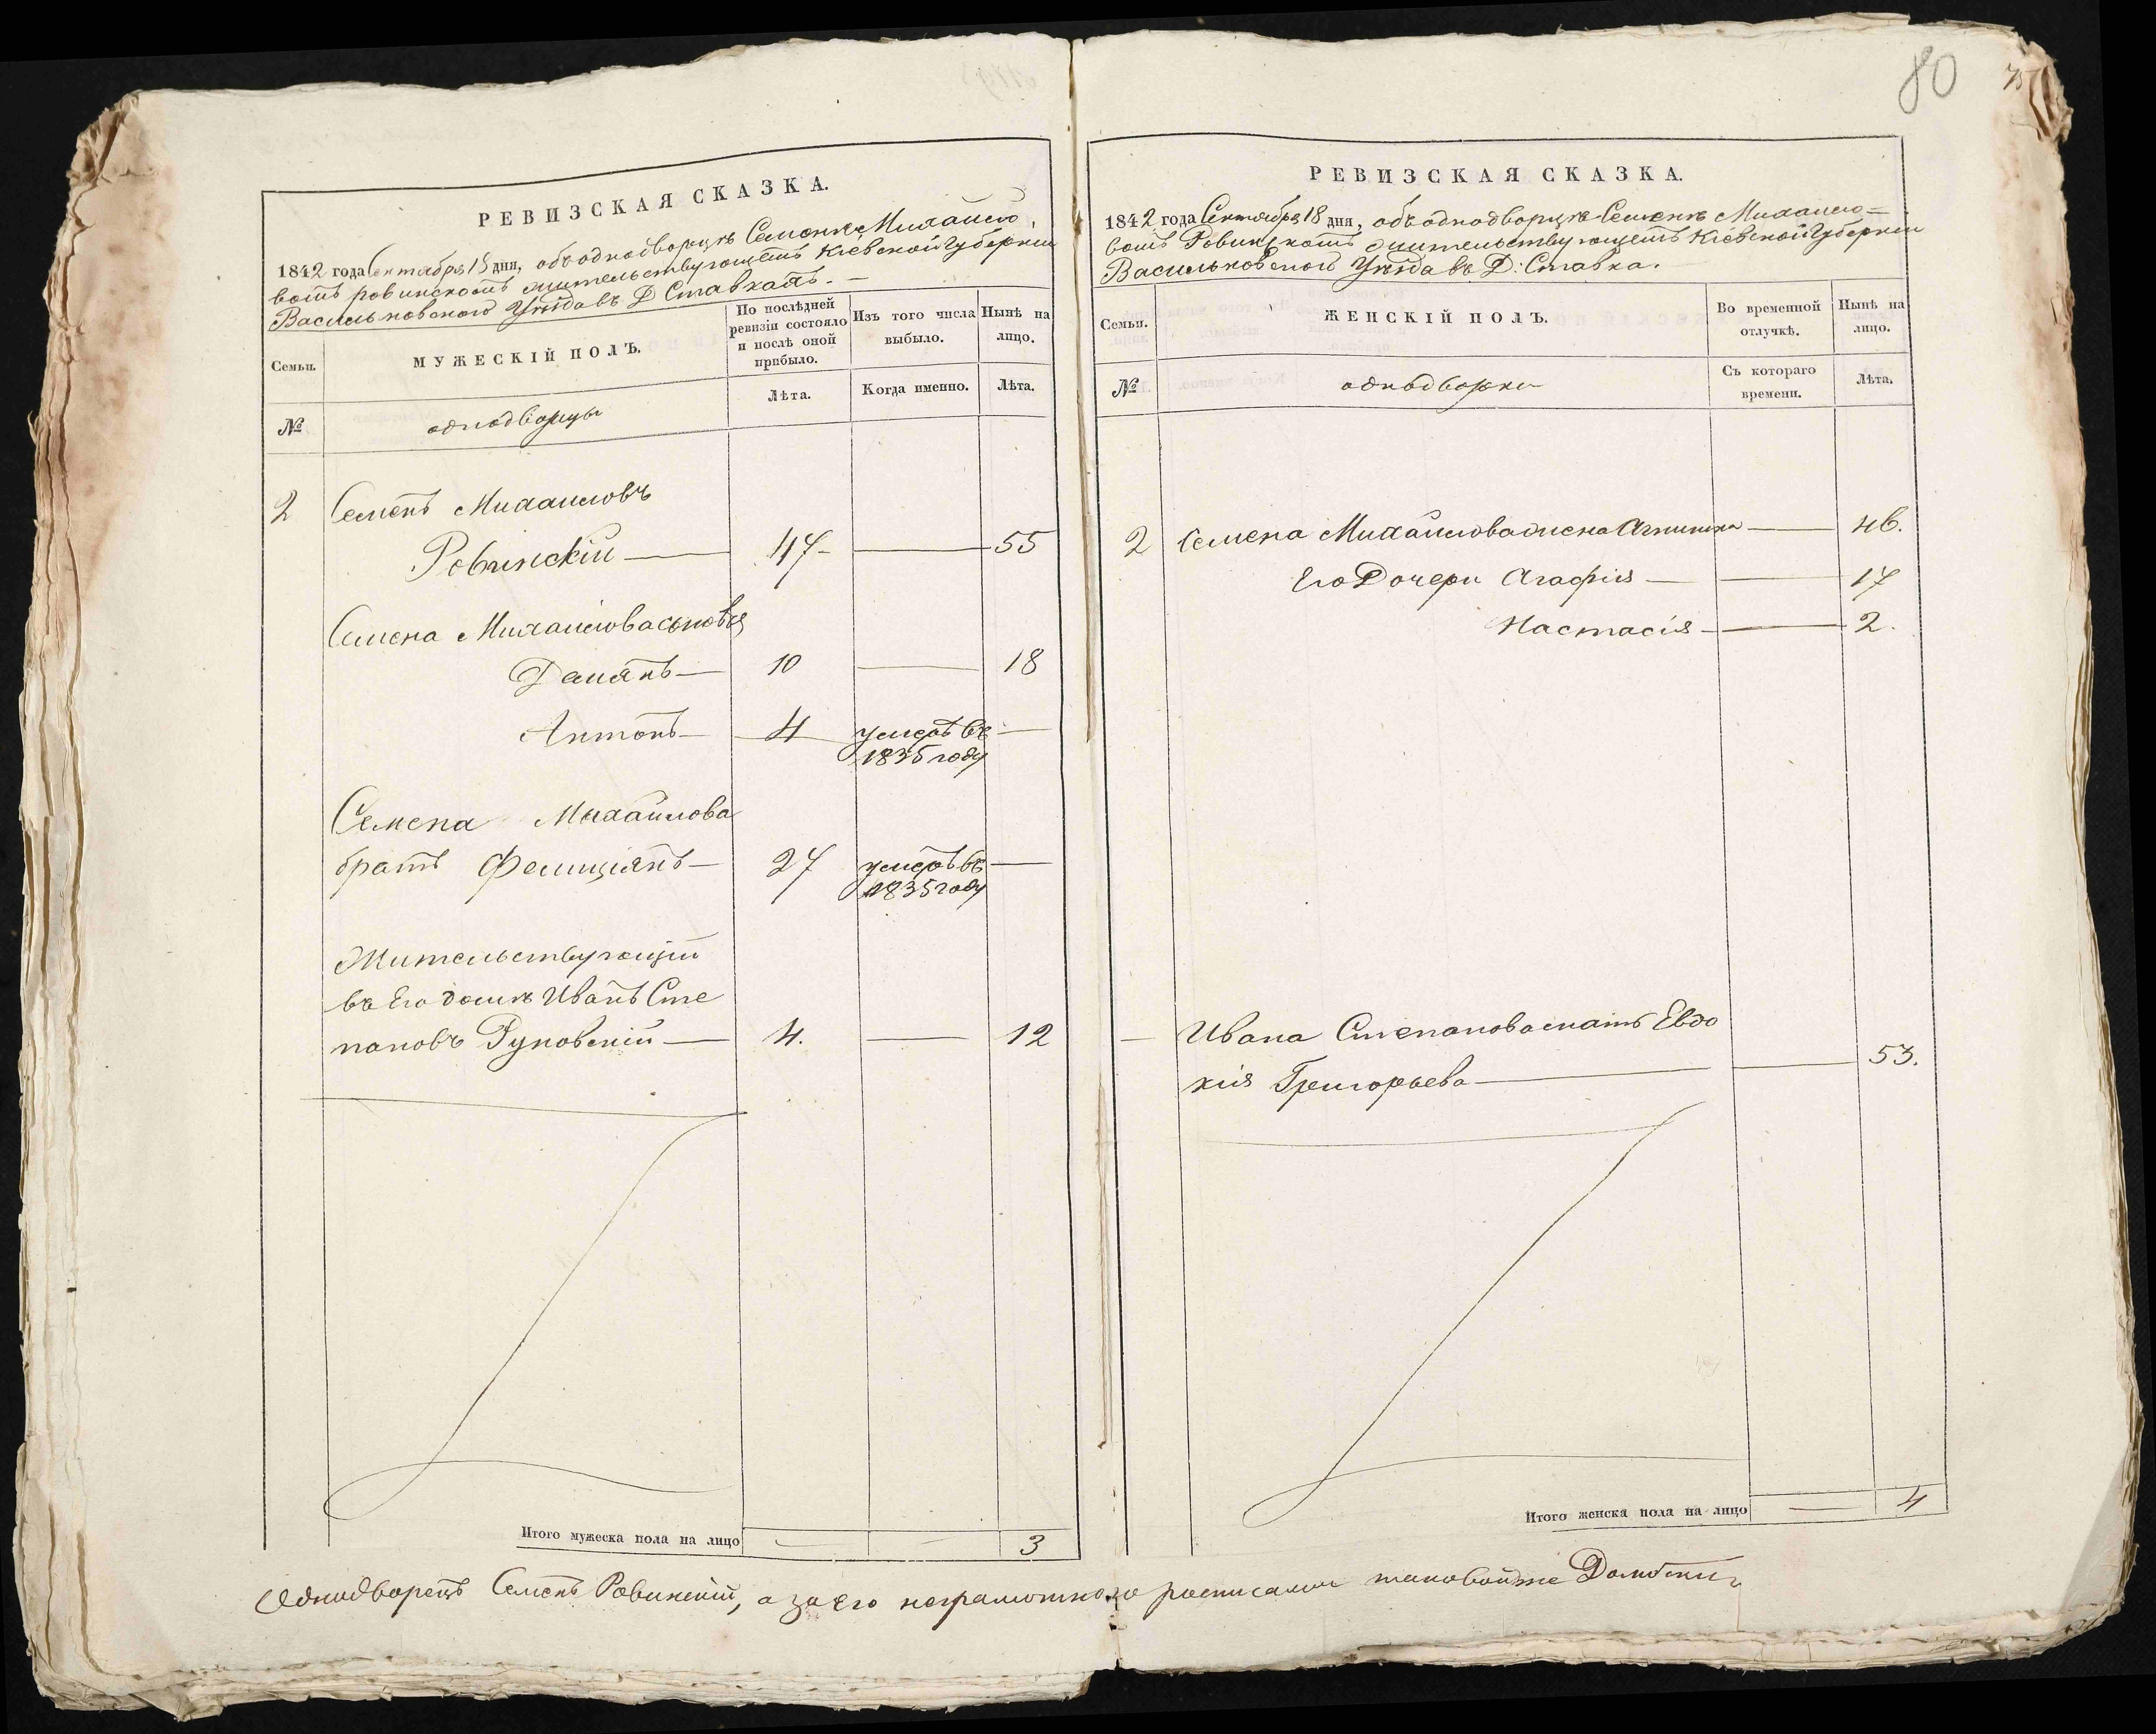 80
РЕВИЗСКАЯ СКАЗКА.
1842 года Сентября 18 дня, объ однодворцѣ Семенѣ Михайло
вомъ ровинскомъ жительствующемъ Кіевской Губерніи
Васильковскаго Уѣзда въ Д Ставкахъ. —
Семьи.
МУЖЕСКІЙ ПОЛЪ.
По послѣдней
ревизіи состояло
и послѣ оной
прибыло.
Изъ того числа
выбыло.
Нынѣ на
лицо.
№
однодворцы
Лѣта.
Когда именно.
Лѣта.
2 Семенъ Михаиловъ
Ровинскій — 47 — 55
Семена Михайлова сыновья
Демянъ — 10 — 18
Антонъ — 4 умеръ въ —
1835 году
Семена Михайлова
братъ Фелиціянъ — 27 умеръ въ —
1835 году
Жительствующій
въ Его домѣ Иванъ Сте
пановъ — 4. — 12
Итого мужеска пола на лицо — — 3
РЕВИЗСКАЯ СКАЗКА.
1842 года Сентября 18 дня, объ однодворцѣ Семенѣ Михайло=
вомъ Ровинскомъ жительствующемъ Кіевской Губерніи
Васильковскаго Уѣзда въ Д: Ставка.
Семьи.
ЖЕНСКІЙ ПОЛЪ.
Во временной
отлучкѣ.
Нынѣ на
лицо.
№
однодворки
Съ котораго
времени.
Лѣта.
2 Семена Михайлова жена — 46.
Его Дочери Агафія — — 17
Настасія — — 2.
— Ивана Степанова мать Евдо
кія Григорьева — — 53.
Итого женска пола на лицо — 4
Однодворецъ Семенъ Ровинскій, а за его неграмотного росписался таковойже